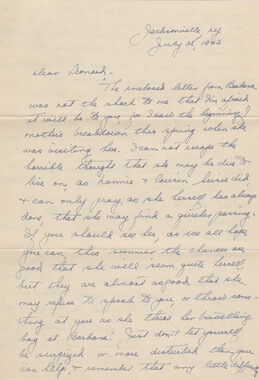 Jacksonville, Ky
July 28, 1943
Dear Leonard,
The enclosed letter from Barbara
was not the shock to me that I'm afraid
it will be to you, for I saw the beginning of
mother's breakdown this spring when she
was visiting her. I can not escape the
horrible thought that she may be due to
live on, as nannie & cousin did
& can only pray, as she herself has always
done, that she may find a quicker passing.
If you should see her, as we all hope
you can, this summer the chances are
good that she will seem quite herself,
but they are almost as good that she
may refuse to speak to you, or throw some-
thing at you as she threw her knitting
bag at Barbara! Just don't let yourself
be surprised or more disturbed than you
can help & remember that any little